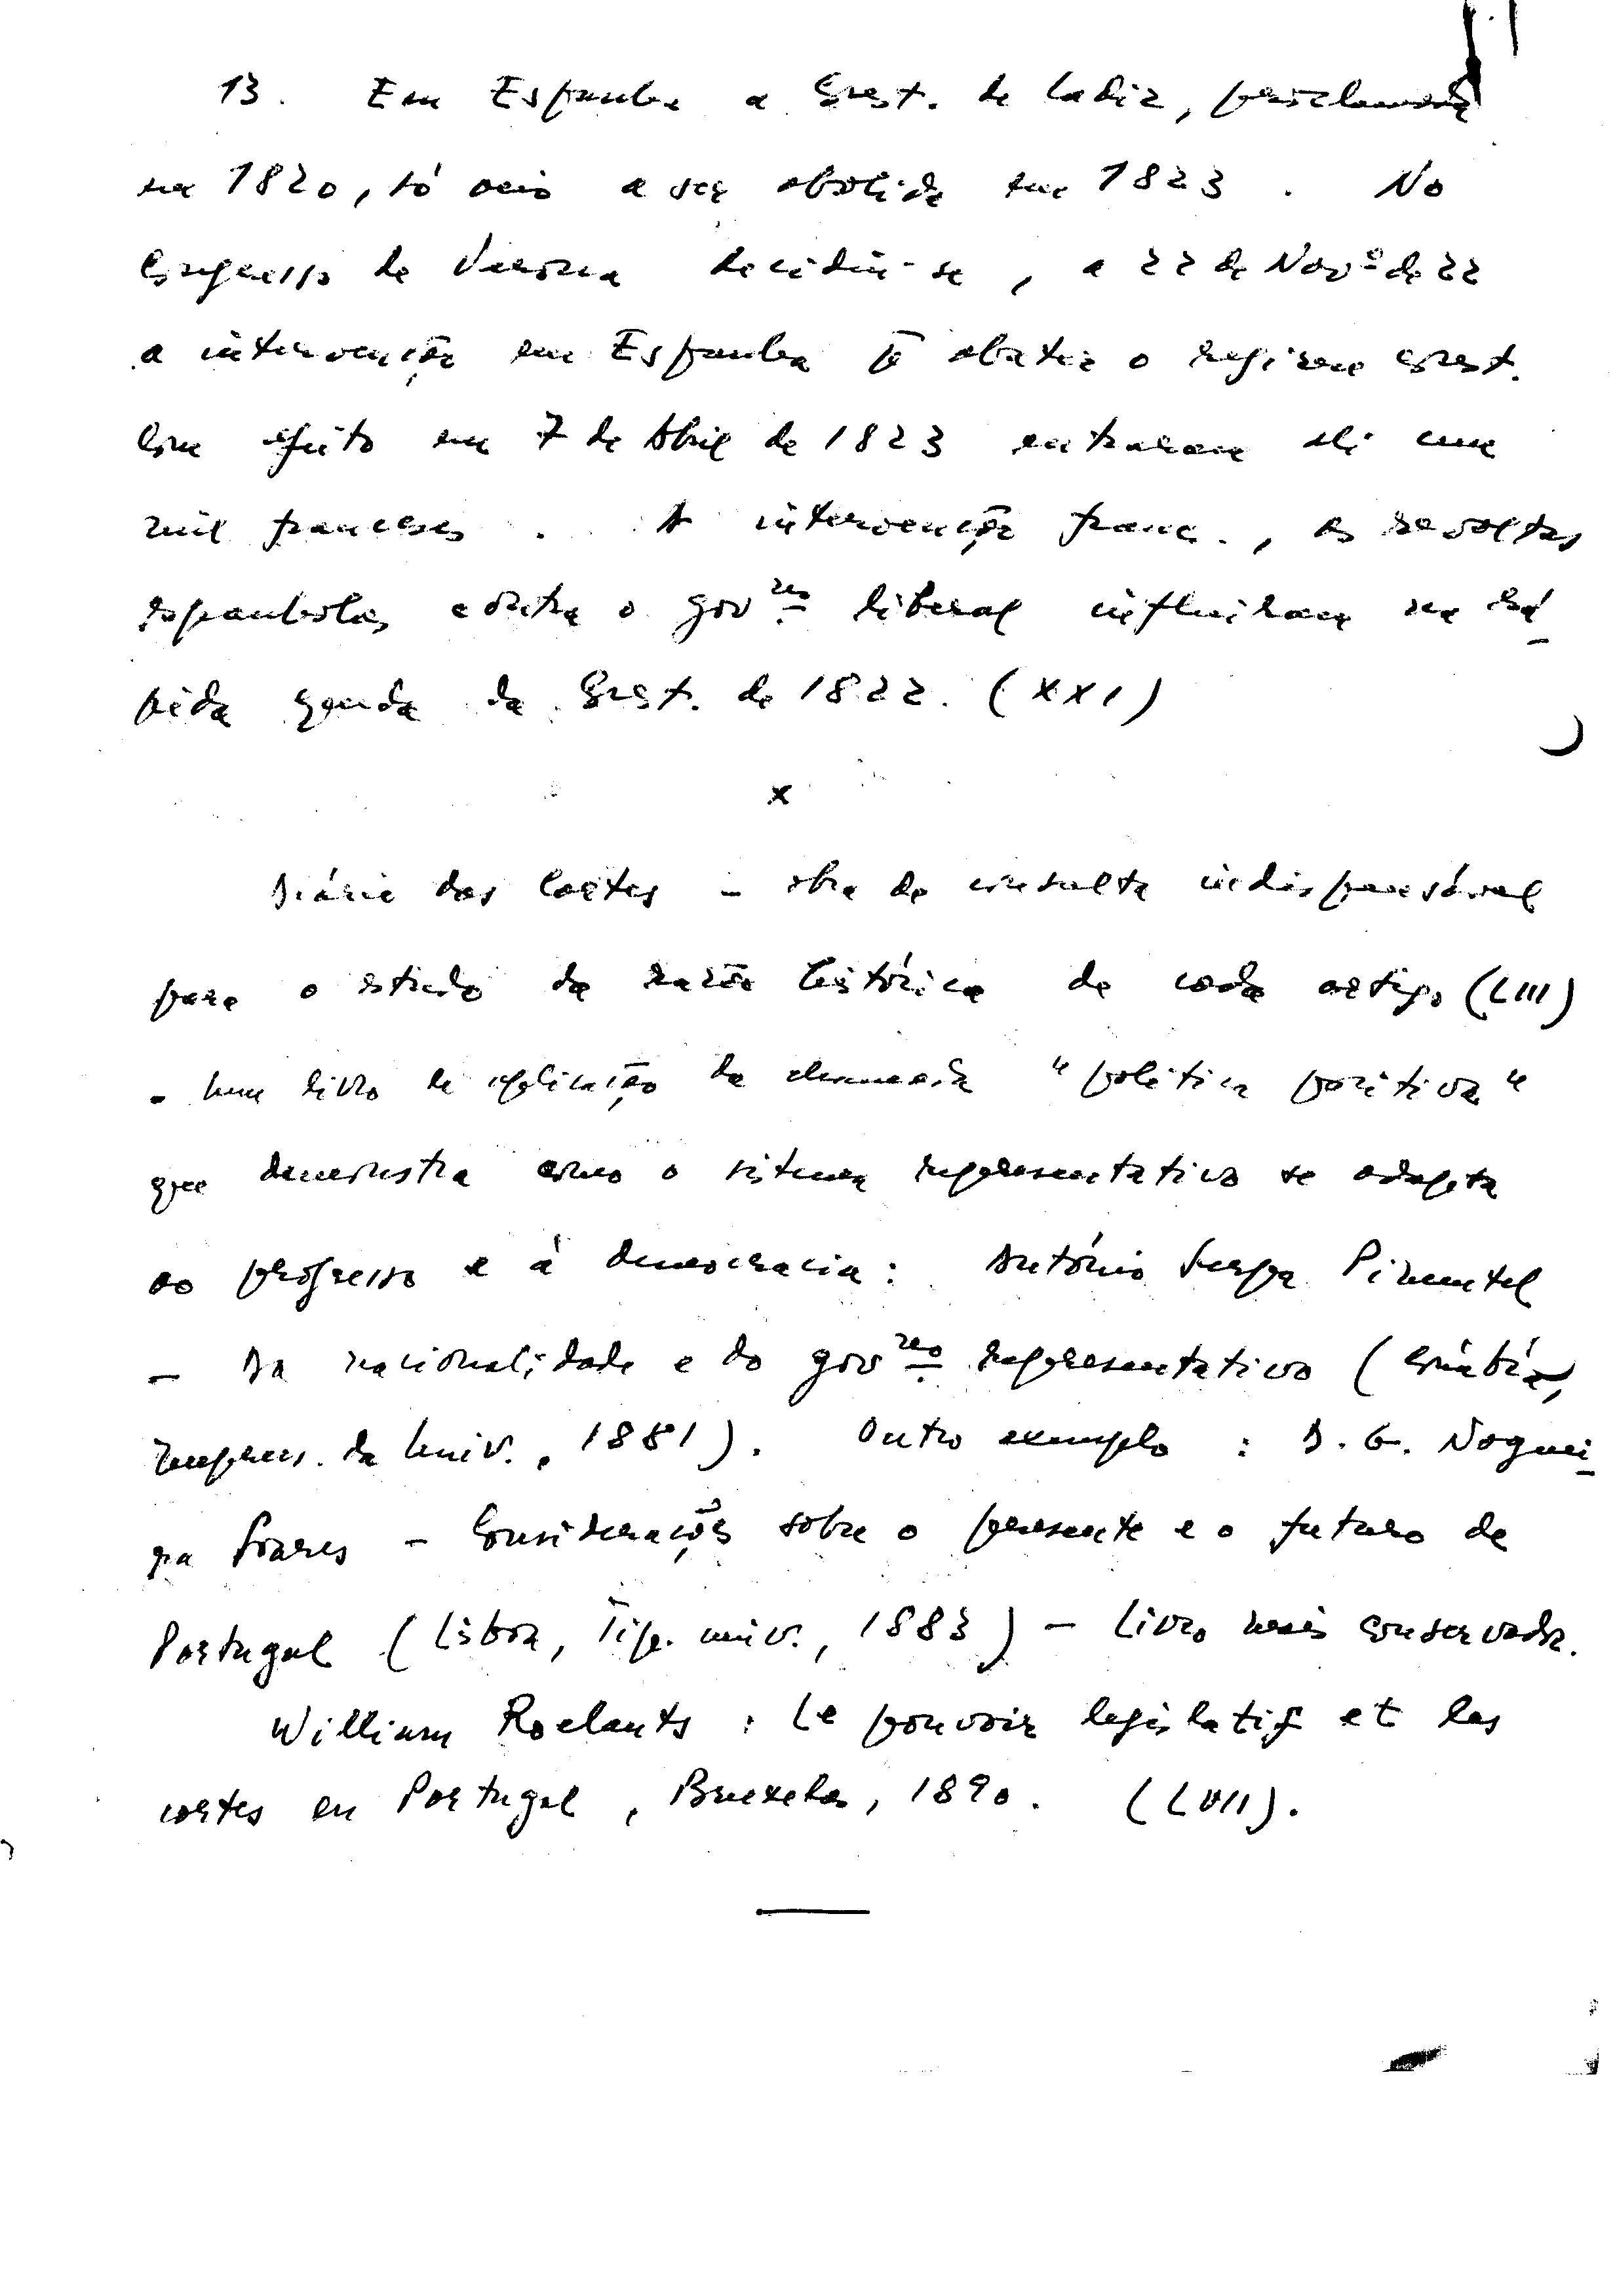 13. Em Espanha a Const. de Cadiz, proclamada
em 1820, só veio a ser abolida em 1823. No
Congresso de Verona decidiu-se, a 22 de Novº de 22
a intervenção em Espanha p̄ abater o regime const.
Com efeito em 7 de Abril de 1823 entraram ali cem
mil franceses. A intervenção franc., as revoltas
espanholas contra o govno liberal influiram na rá-
pida queda da Const. de 1822. (XXI)
x
Diário das Cortes - obra de consulta indispensável
para o estudo da razão histórica de cada artigo (LIII)
- Um livro de aplicação da chamada "politica positiva"
que demonstra como o sistema representativo se adapta
ao progresso e à democracia: António Serpa Pimentel
- Da nacionalidade e do govno representativo (Coimbra,
Imprens. da Univ., 1881). Outro exemplo: D. G. Noguei-
ra Soares - Considerações sobre o presente e o futuro de
Portugal (Lisboa, Tip. univ., 1883) - Livro mais conservador.
William Roelants: Le pouvoir legislatif et les
cortes en Portugal, Bruxelas, 1890. (LVII).